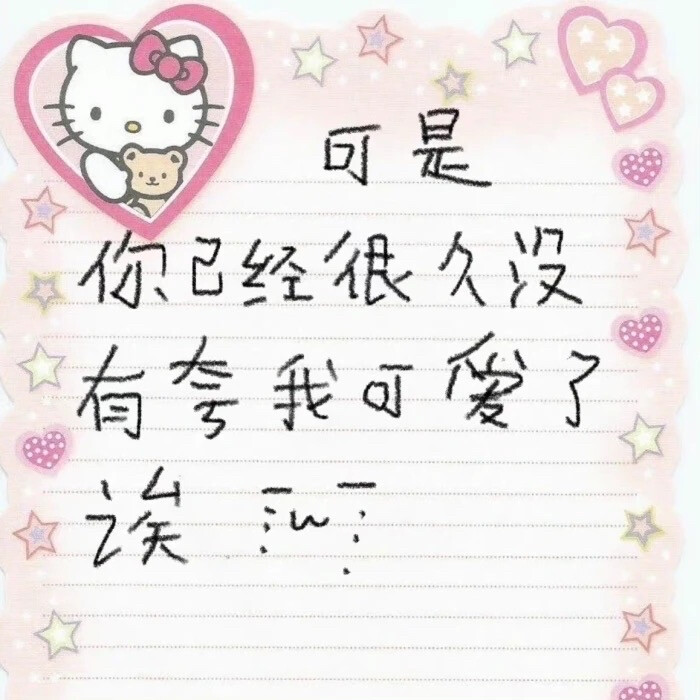 可是
你已经很久没
有夸我可爱了
诶